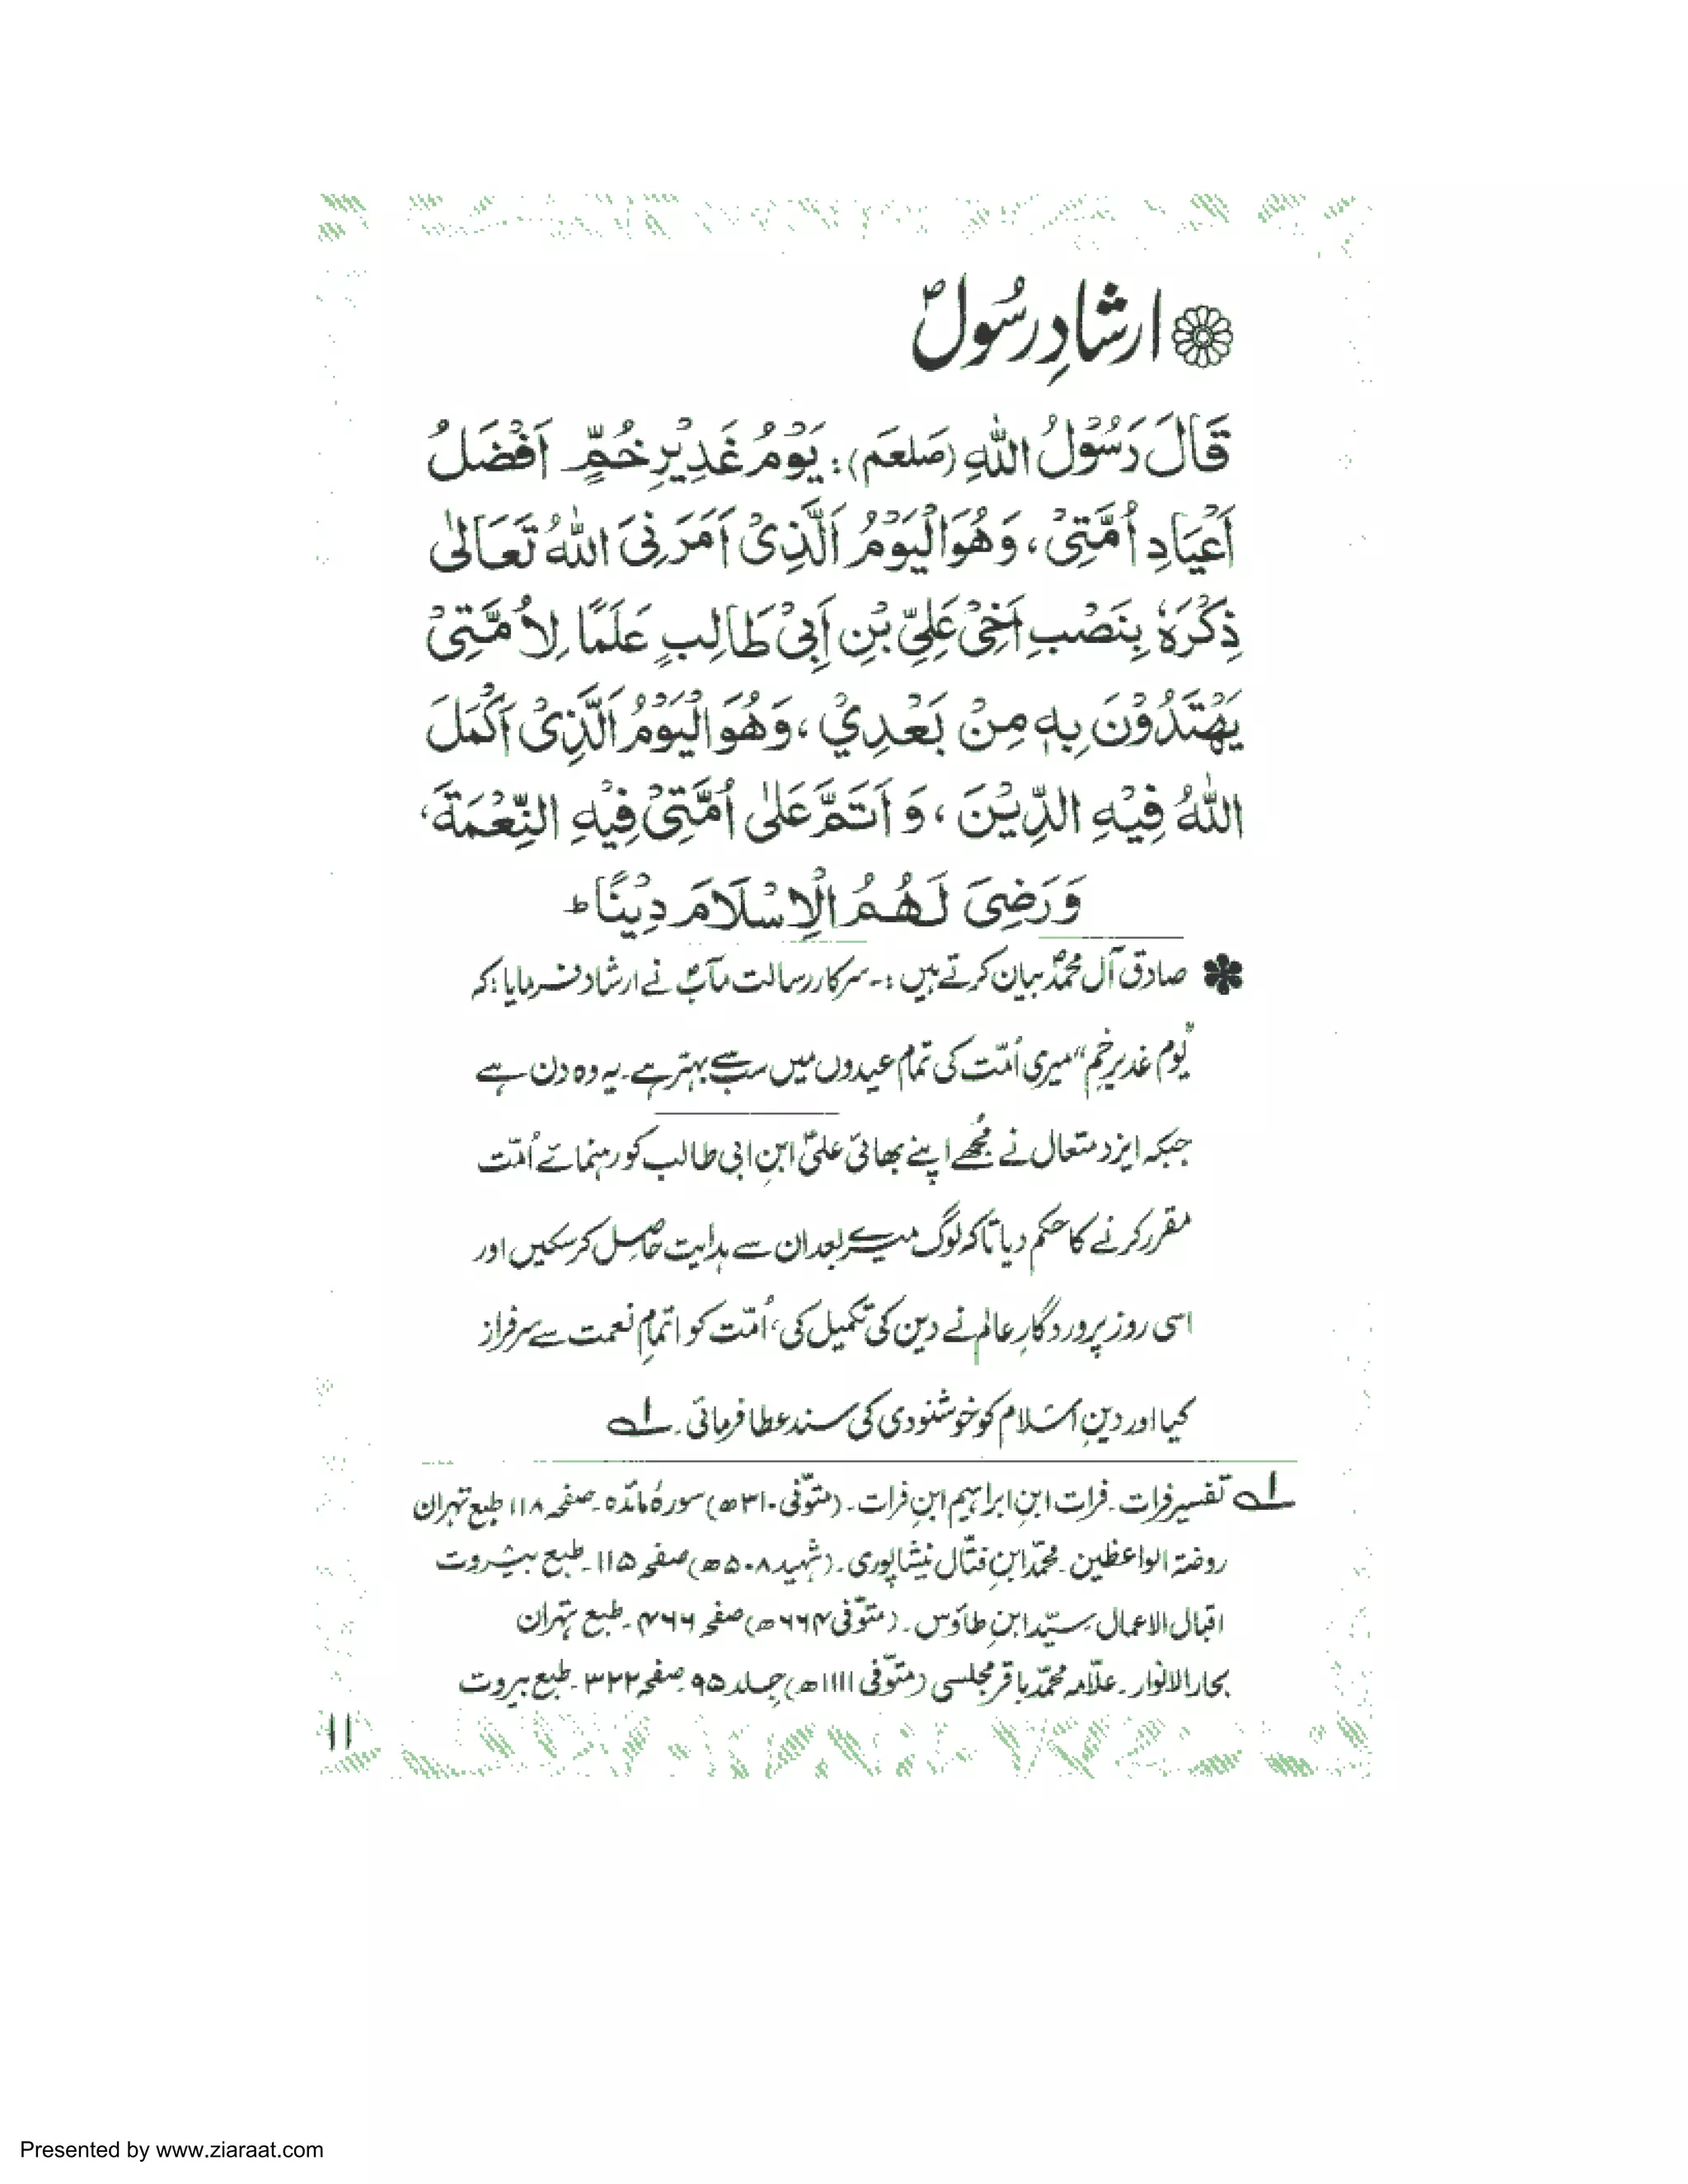 ارشادِ رسُولؐ
قَالَ رَسُوْلُ اللّٰهِ (صَلعَم): يَوْمُ غَدِيْرِ خُمٍّ اَفْضَلُ
اَعْيَادِ اُمَّتِىْ، وَهُوَ الْيَوْمُ الَّذِىْ اَمَرَنِىَ اللّٰهُ تَعَالٰى
ذِكْرُهٗ بِنَصْبِ اَخِىْ عَلِىِّ بْنِ اَبِىْ طَالِبٍ عَلَمًا لِاُمَّتِىْ
يَهْتَدُوْنَ بِهٖ مِنْ بَعْدِيْ، وَهُوَ الْيَوْمُ الَّذِىْ اَكْمَلَ
اللّٰهُ فِيْهِ الدِّيْنَ، وَ اَتَمَّ عَلٰى اُمَّتِىْ فِيْهِ النِّعْمَةَ،
وَرَضِىَ لَهُمُ الْاِسْلَامَ دِيْنًا ؕ
صادق آلِ محمدؐ بیان کرتے ہیں :۔ سرکار رسالت مآبؐ نے ارشاد فرمایا: کہ
"یوم غدیر خم" میری اُمّت کی تمام عیدوں میں سب سے بہتر ہے۔ یہ وہ دن ہے
جبکہ ایزد متعال نے مُجھے اپنے بھائی علیؑ ابنِ ابی طالب کو رہنمائے اُمّت
مقرر کرنے کا حکم دیا تاکہ لوگ میرے بعد ان سے ہدایت حاصِل کر سکیں اور
اسی روز پروردگارِ عالم نے دین کی تکمیل کی، اُمّت کو اتمامِ نعمت سے سرفراز
کیا اور دینِ اسلام کو خوشنودی کی سند عطا فرمائی۔ ۱؎
۱؎ تفسیر فرات۔ فرات ابنِ ابراہیم ابنِ فرات۔ (متوفّٰی ۳۱۰ھ) سورۂ مائدہ۔ صفحہ ۱۱۸ طبع تہران
روضۃ الواعظین۔ محمّد ابنِ فتّال نیشاپوری۔ (شہید ۵۰۸ھ) صفحہ ۱۱۵۔ طبع بیروت
اقبال الاعمال سیّد ابنِ طاؤس۔ (متوفّٰی ۶۶۴ھ) صفحہ ۴۶۶۔ طبع تہران
بحار الانوار۔ علّامہ محمّد باقر مجلسی (متوفّٰی ۱۱۱۱ھ) جلد ۹۵ صفحہ ۳۲۲۔ طبع بیروت
۱۱
Presented by www.ziaraat.com